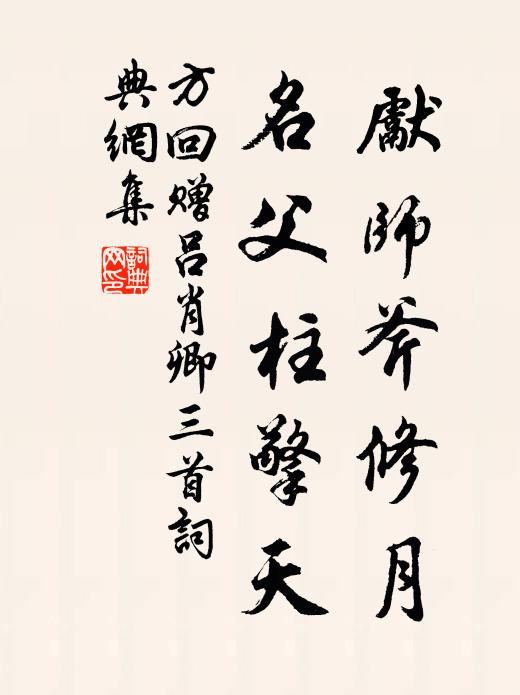 獻師斧修月
名父柱擎天
方回赠吕肖卿三首詞
典網集
詞典
网印